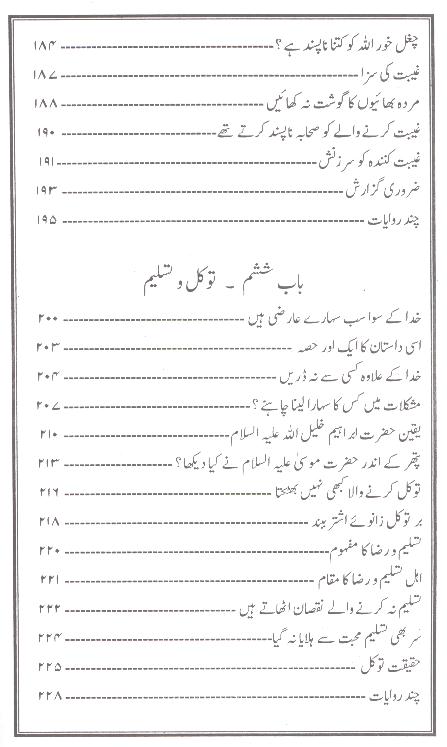 چغل خور اللہ کو کتنا ناپسند ہے؟ ۱۸۴
غیبت کی سزا ۱۸۷
مردہ بھائیوں کا گوشت نہ کھائیں ۱۸۸
غیبت کرنے والے کو صحابہ ناپسند کرتے تھے ۱۹۰
غیبت کنندہ کو سرزنش ۱۹۱
ضروری گزارش ۱۹۳
چند روایات ۱۹۵
باب ششم ۔ توکل و تسلیم
خدا کے سوا سب سہارے عارضی ہیں ۲۰۰
اسی داستان کا ایک اور حصہ ۲۰۳
خدا کے علاوہ کسی سے نہ ڈریں ۲۰۴
مشکلات میں کس کا سہارا لینا چاہئے؟ ۲۰۷
یقین حضرت ابراہیم خلیل اللہ علیہ السلام ۲۱۰
پتھر کے اندر حضرت موسیٰ علیہ السلام نے کیا دیکھا؟ ۲۱۳
توکل کرنے والا کبھی نہیں بھٹکتا ۲۱۶
بر توکل زانوئے اشتر ببند ۲۱۸
تسلیم و رضا کا مفہوم ۲۲۰
اہل تسلیم و رضا کا مقام ۲۲۱
تسلیم نہ کرنے والے نقصان اٹھاتے ہیں ۲۲۲
سر بھی تسلیم محبت سے ہلایا نہ گیا ۲۲۴
حقیقت توکل ۲۲۵
چند روایات ۲۲۸